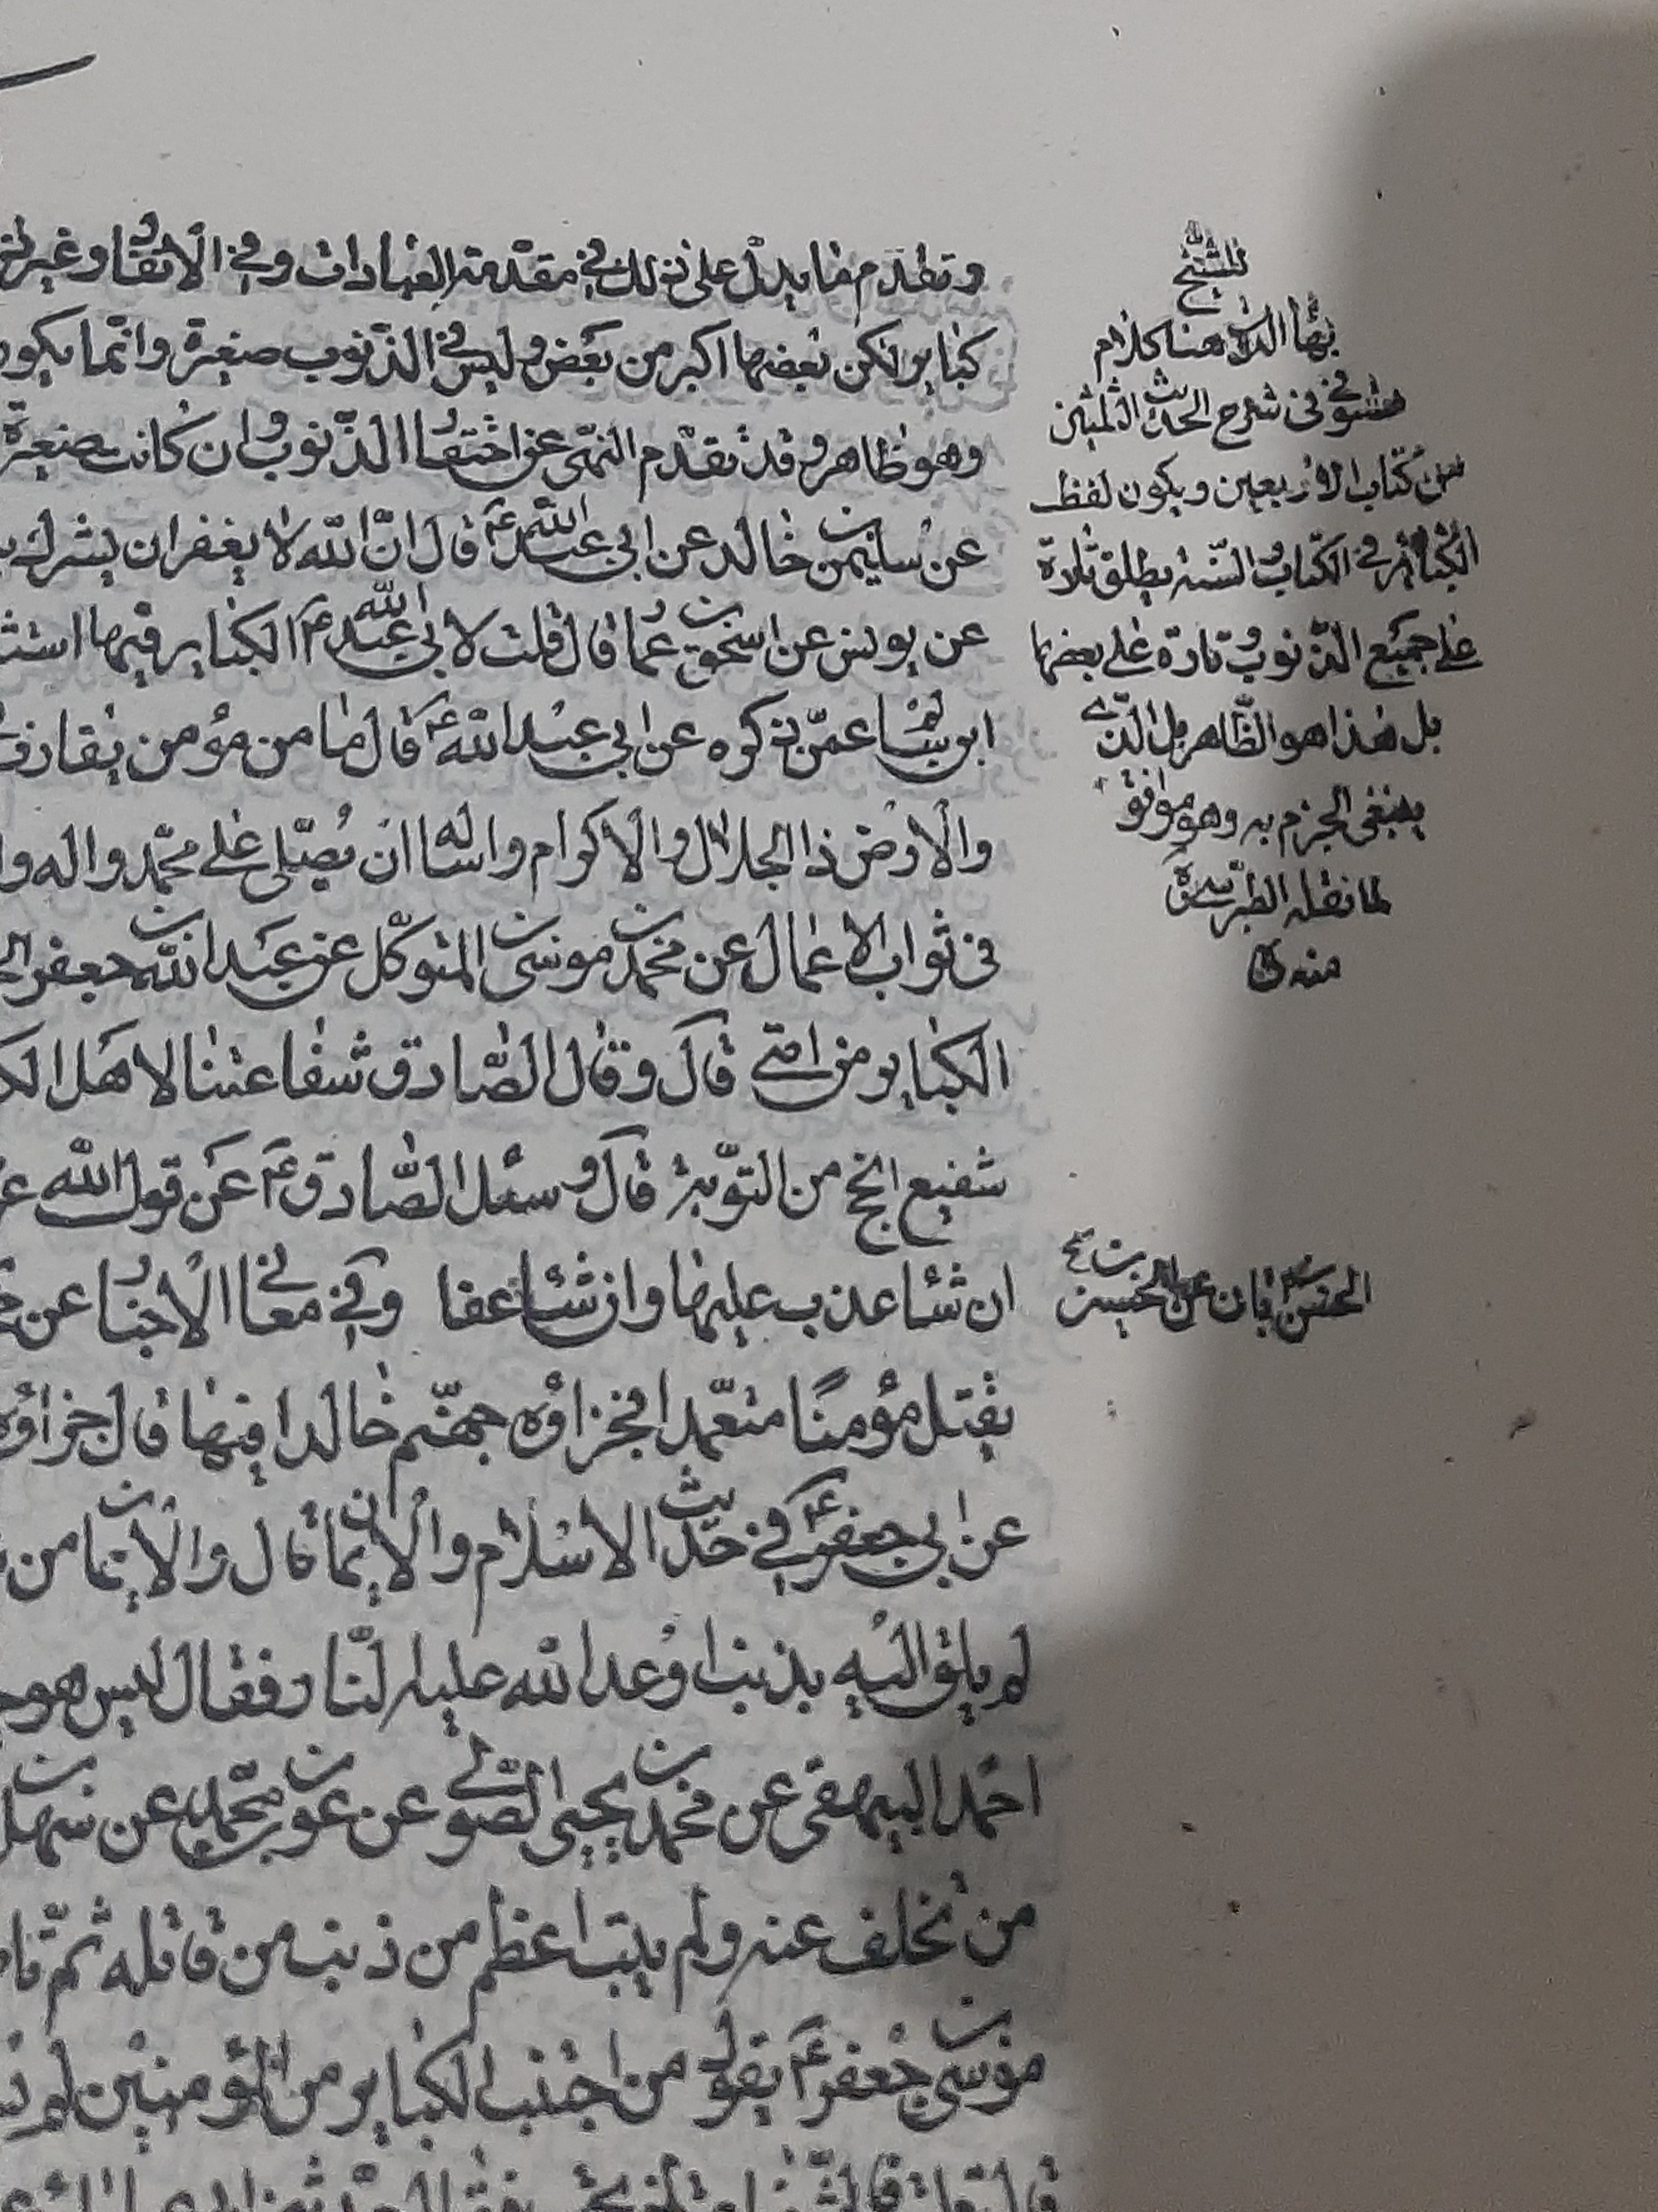 وتقدم ما يدل على ذلك في مقدمة العبادات وفي الاحتقار وغير
كبائر ولكن بعضها اكبر من بعض وليس في الذنوب صغيرة وانما يكو
وهو ظاهر وقد تقدم النهى عن احتقار الذنوب وان كانت صغيرة
عن سليمن بن خالد عن ابي عبد الله ع قال ان الله لا يغفر ان يشرك
عن يونس عن اسحق بن عمار قال قلت لابي عبد الله ع الكبائر فيها استث
ابن عمن ذكره عن ابي عبد الله ع قال ما من مؤمن يقارف
والارض ذا الجلال والاكرام واساله ان يصلى على محمد واله و
في ثواب الاعمال عن محمد بن موسى بن المتوكل عن عبد الله بن جعفر
الكبائر من امتي قال وقال الصادق شفاعتنا لاهل
شفيع انجح من التوبة قال وسئل الصادق ع عن قول الله
ان شاء عذب عليها وان شاء عفا وفي معاني الاخبار عن
يقتل مؤمنا متعمدا فجزاؤه جهنم خالدا فيها قال جزاؤه
عن ابي جعفر ع في حديث الاسلام والايمان قال والايمان من
لم يلق الله بذنب اوعد الله عليه النار فقال ليس هو
احمد البيهقى عن محمد بن يحيى الصولي عن عون بن محمد عن سهل بن
من تخلف عنه ولم يتب اعظم من ذنب من قاتله ثم تا
موسى بن جعفر ع يقول من اجتنب الكبائر من المؤمنين لم
للشيخ
بهاء الدين هنا كلام
في شرح الحديث الثلثين
من كتاب الاربعين ويكون لفظ
الكبائر في الكتاب والسنة يطلق تارة
على جميع الذنوب وتارة على بعضها
بل هذا هو الظاهر بل الذي
ينبغى الجزم به وهو موافق
لما نقله الطبرسي
منه
الحسن بن ابان عن الحسين بن